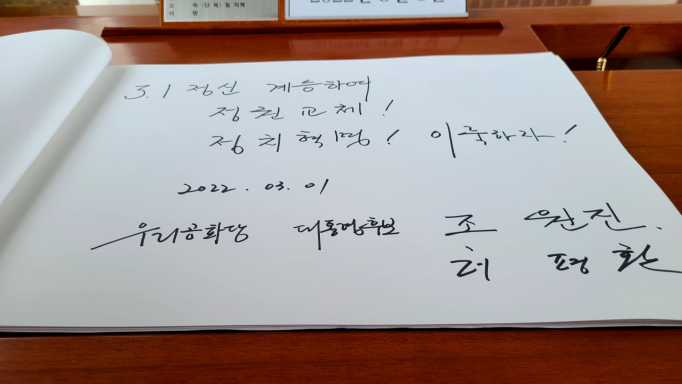 소 속 (단 체) 및 직 책
3.1 정신 계승하여
정권 교체!
정치혁명! 이룩하자!
2022. 03. 01
우리공화당 대통령후보 조 원진.
허 평환